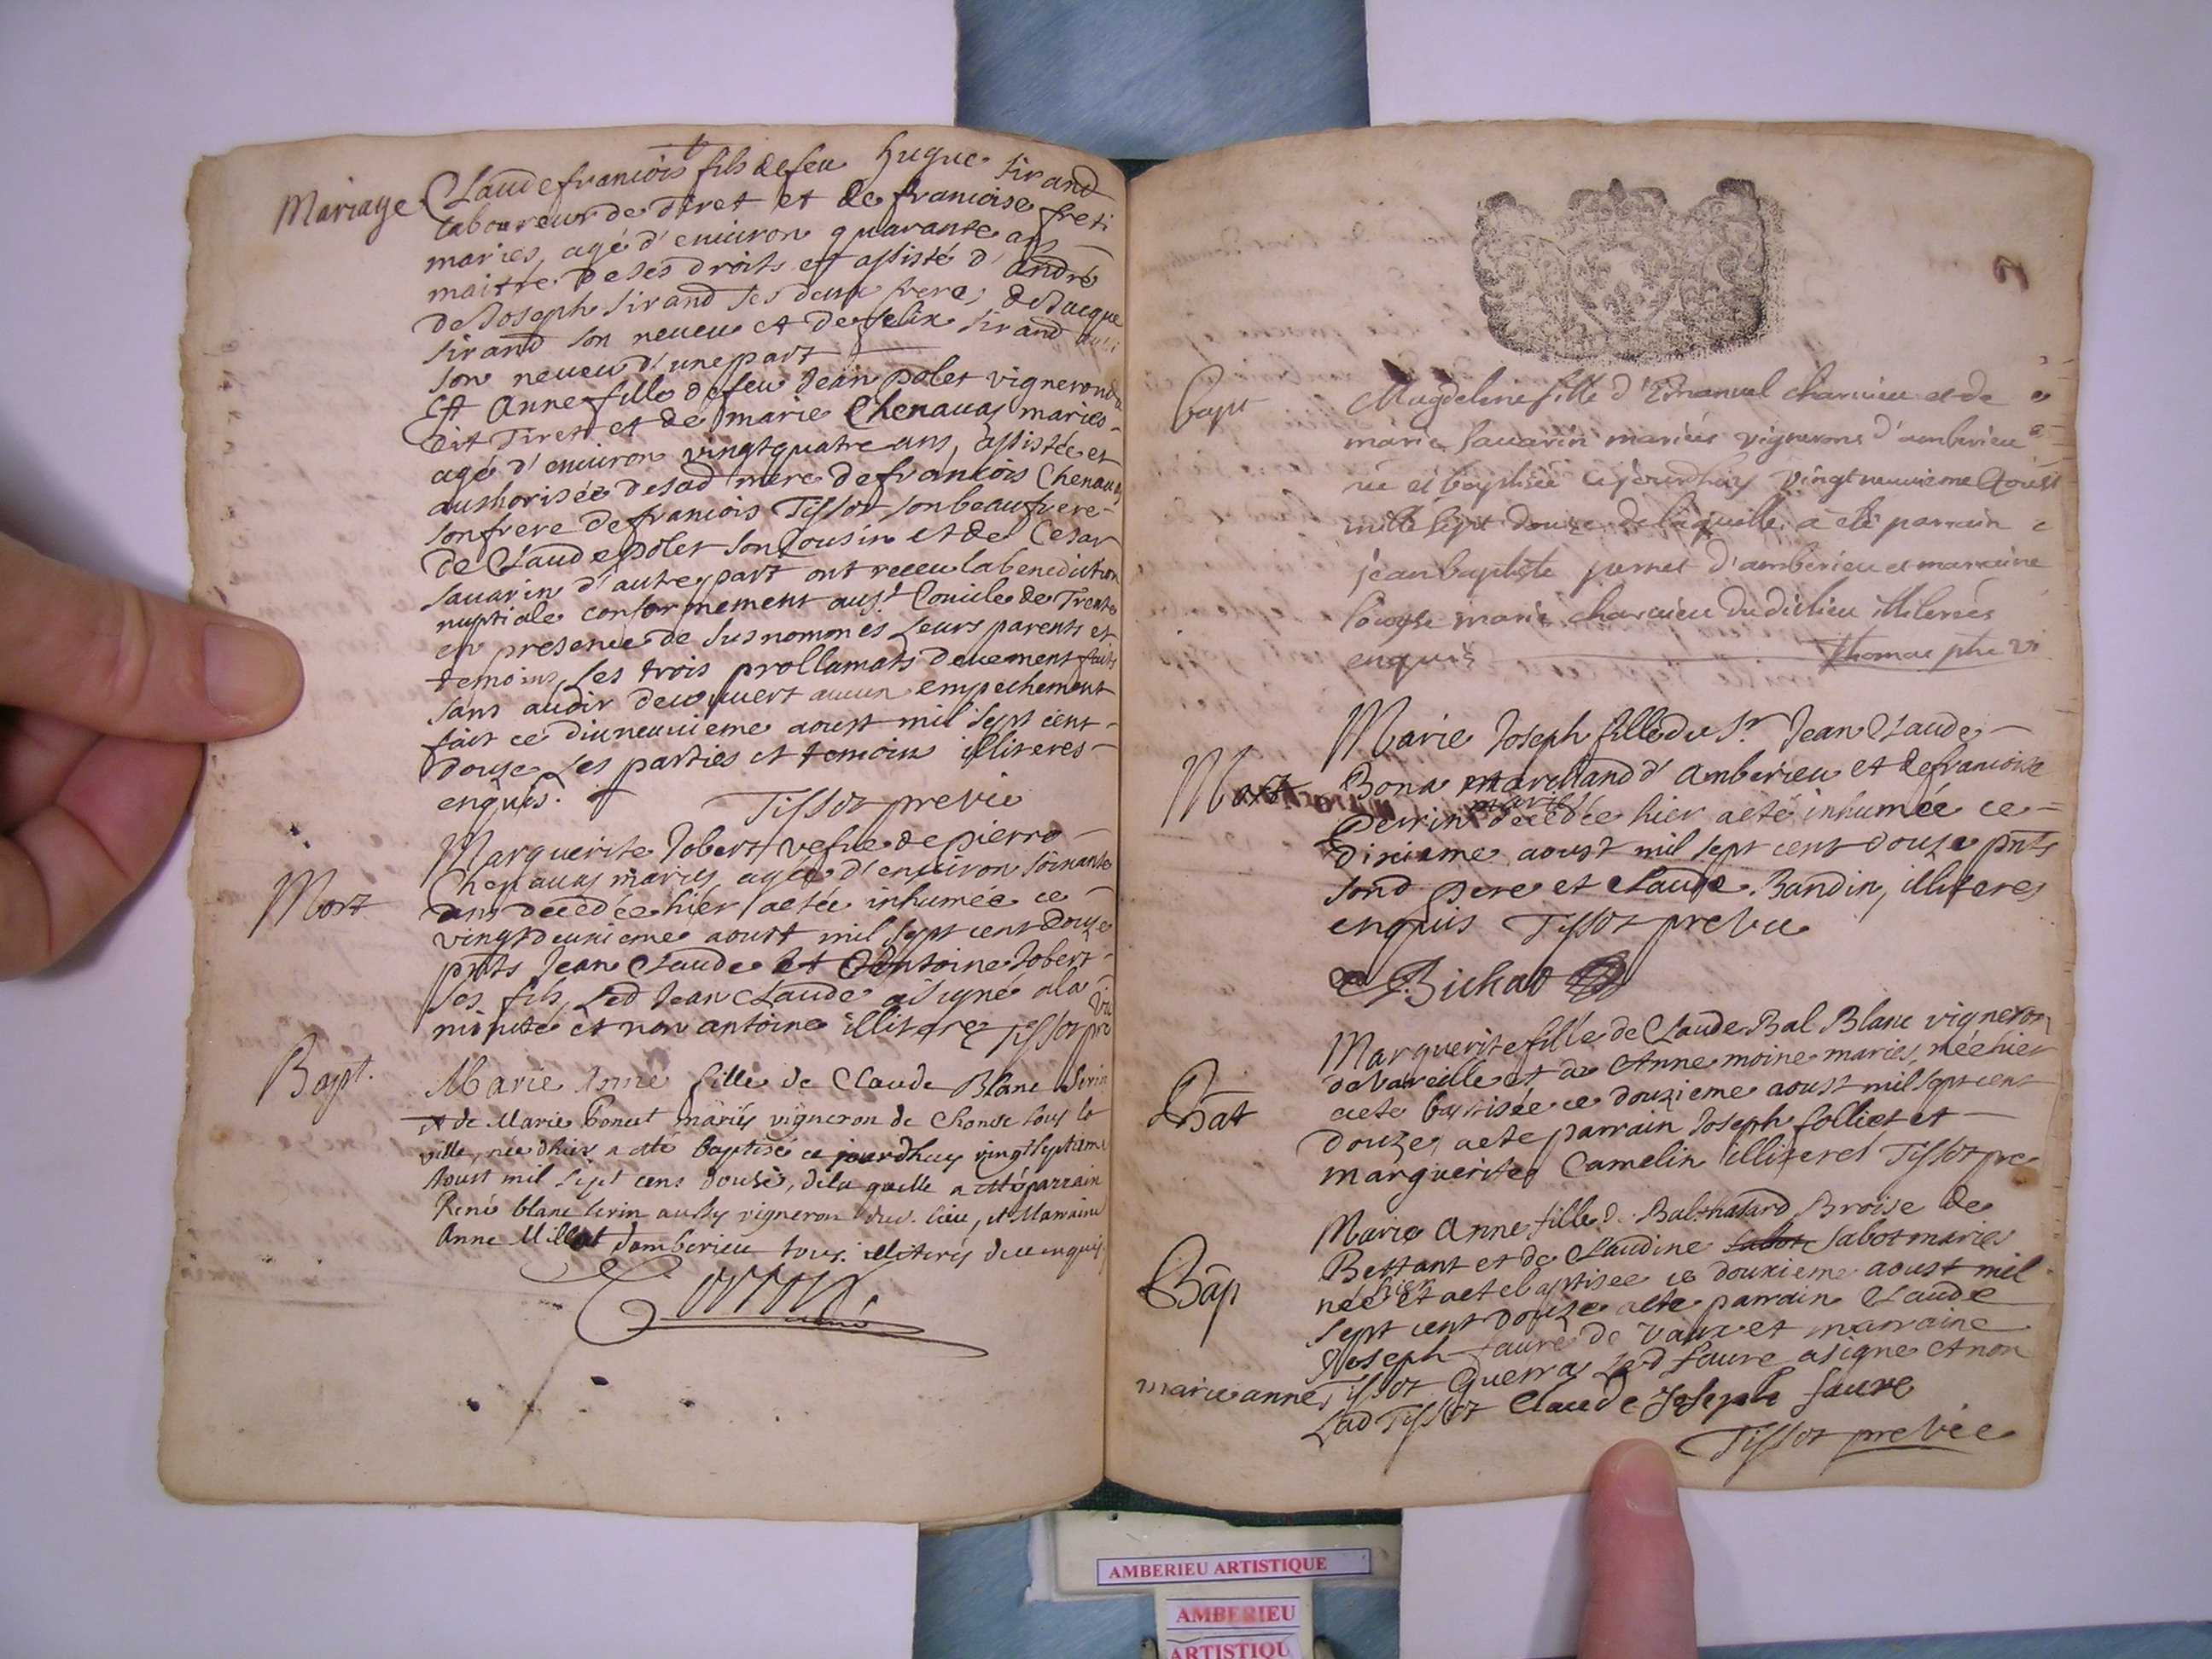 Mariage
Claude francois fils de feu hugue sirand
laboureur de Tiret et de francoise freti
maries, agé d'environ quarante ans
maitre de ses droits et assisté d'andré
de Joseph sirand ses deux frere, de Jacque
sirand son neueu et de felix sirand
son neueu d'une part
Et Anne fille de feu Jean polet vigneron du
dit Tiret et de marie Chenauas maries
agé d'enuiron vingt quatre ans, assistée et
authorisée de sad mere de francois Chenauas
son frere de francois Tissot son beaufrere
de Claude polet son cousin et de Cesar
sauarin d'autre part ont receu la benediction
nuptiale conformement au st Concile de Trente
en presence de susnommés Leurs parents et
temoins, Les trois proclamats deuement faits
sans auoir decouuert aucun empechement
fait ce diuneuuieme aoust mil sept cent
douze Les parties et temoins illiteres
enquis. Tissot previc
Mort
Marguerite Jobert vefue de pierre
Chenauas maries agée d'enuiron soixante
ans decedée hier a etée inhumée ce
vingt deuxieme aoust mil sept cent douze
pnts Jean Claude et Antoine Jobert
ses fils, Led Jean Claude a signé a la
minute et non antoine illitere Tissot pre
vic
Bapt.
Marie Anne fille de Claude Blanc serin
et de Marie bonet mariés vigneron de
ville, née dhier a etté baptisé ce jourdhuy vingt septieme
Aoust mil sept cens douse, de la quelle a etté parrain
René blanc serin aussy vigneron dud. lieu, et Marraine
Anne Millet damberieu tous illiterés de enquis
bapt
Magdelene fille d'Emanuel charuieu et de
marie sauarin mariés vignerons d'amberieu
né et baptisée ce jourdhuy vingt neuuieme Aoust
mille sept douze de laquelle a eté parrain
jean baptiste d'amberieu et marraine
Louyse marie charuieu dudit lieu illiterés
enquis Thomas ptre vi
Mort
Marie Joseph fille du Sr Jean Claude
Bona marchand d'Amberieu et de francoise
perrin mariés decedée hier a eté inhumée ce
dixieme aoust mil sept cent douze pnts
sond pere et Claude Bandin, illiteres
enquis Tissot pre vic
Bichat
Bat
Marguerite fille de Claude Bal Blanc vigneron
de Vareille et de Anne moine maries, née hier
a ete batisée ce douzieme aoust mil sept cent
douze, a ete parrain Joseph folliet et
marguerite Camelin illiteres Tissot pre
Bap
Marie Anne fille de Balthasard Broise de
Bettant et de Claudine sabot maries
née hier et a ete baptisee ce douxieme aoust mil
sept cent douze a ete parrain Claude
Joseph faure de Vaux et marraine
marie anne Tissot Guerra Led faure a signe et non
Lad Tissot Claude Joseph faure
Tissot pre vic
AMBERIEU ARTISTIQUE
AMBERIEU
ARTISTIQU